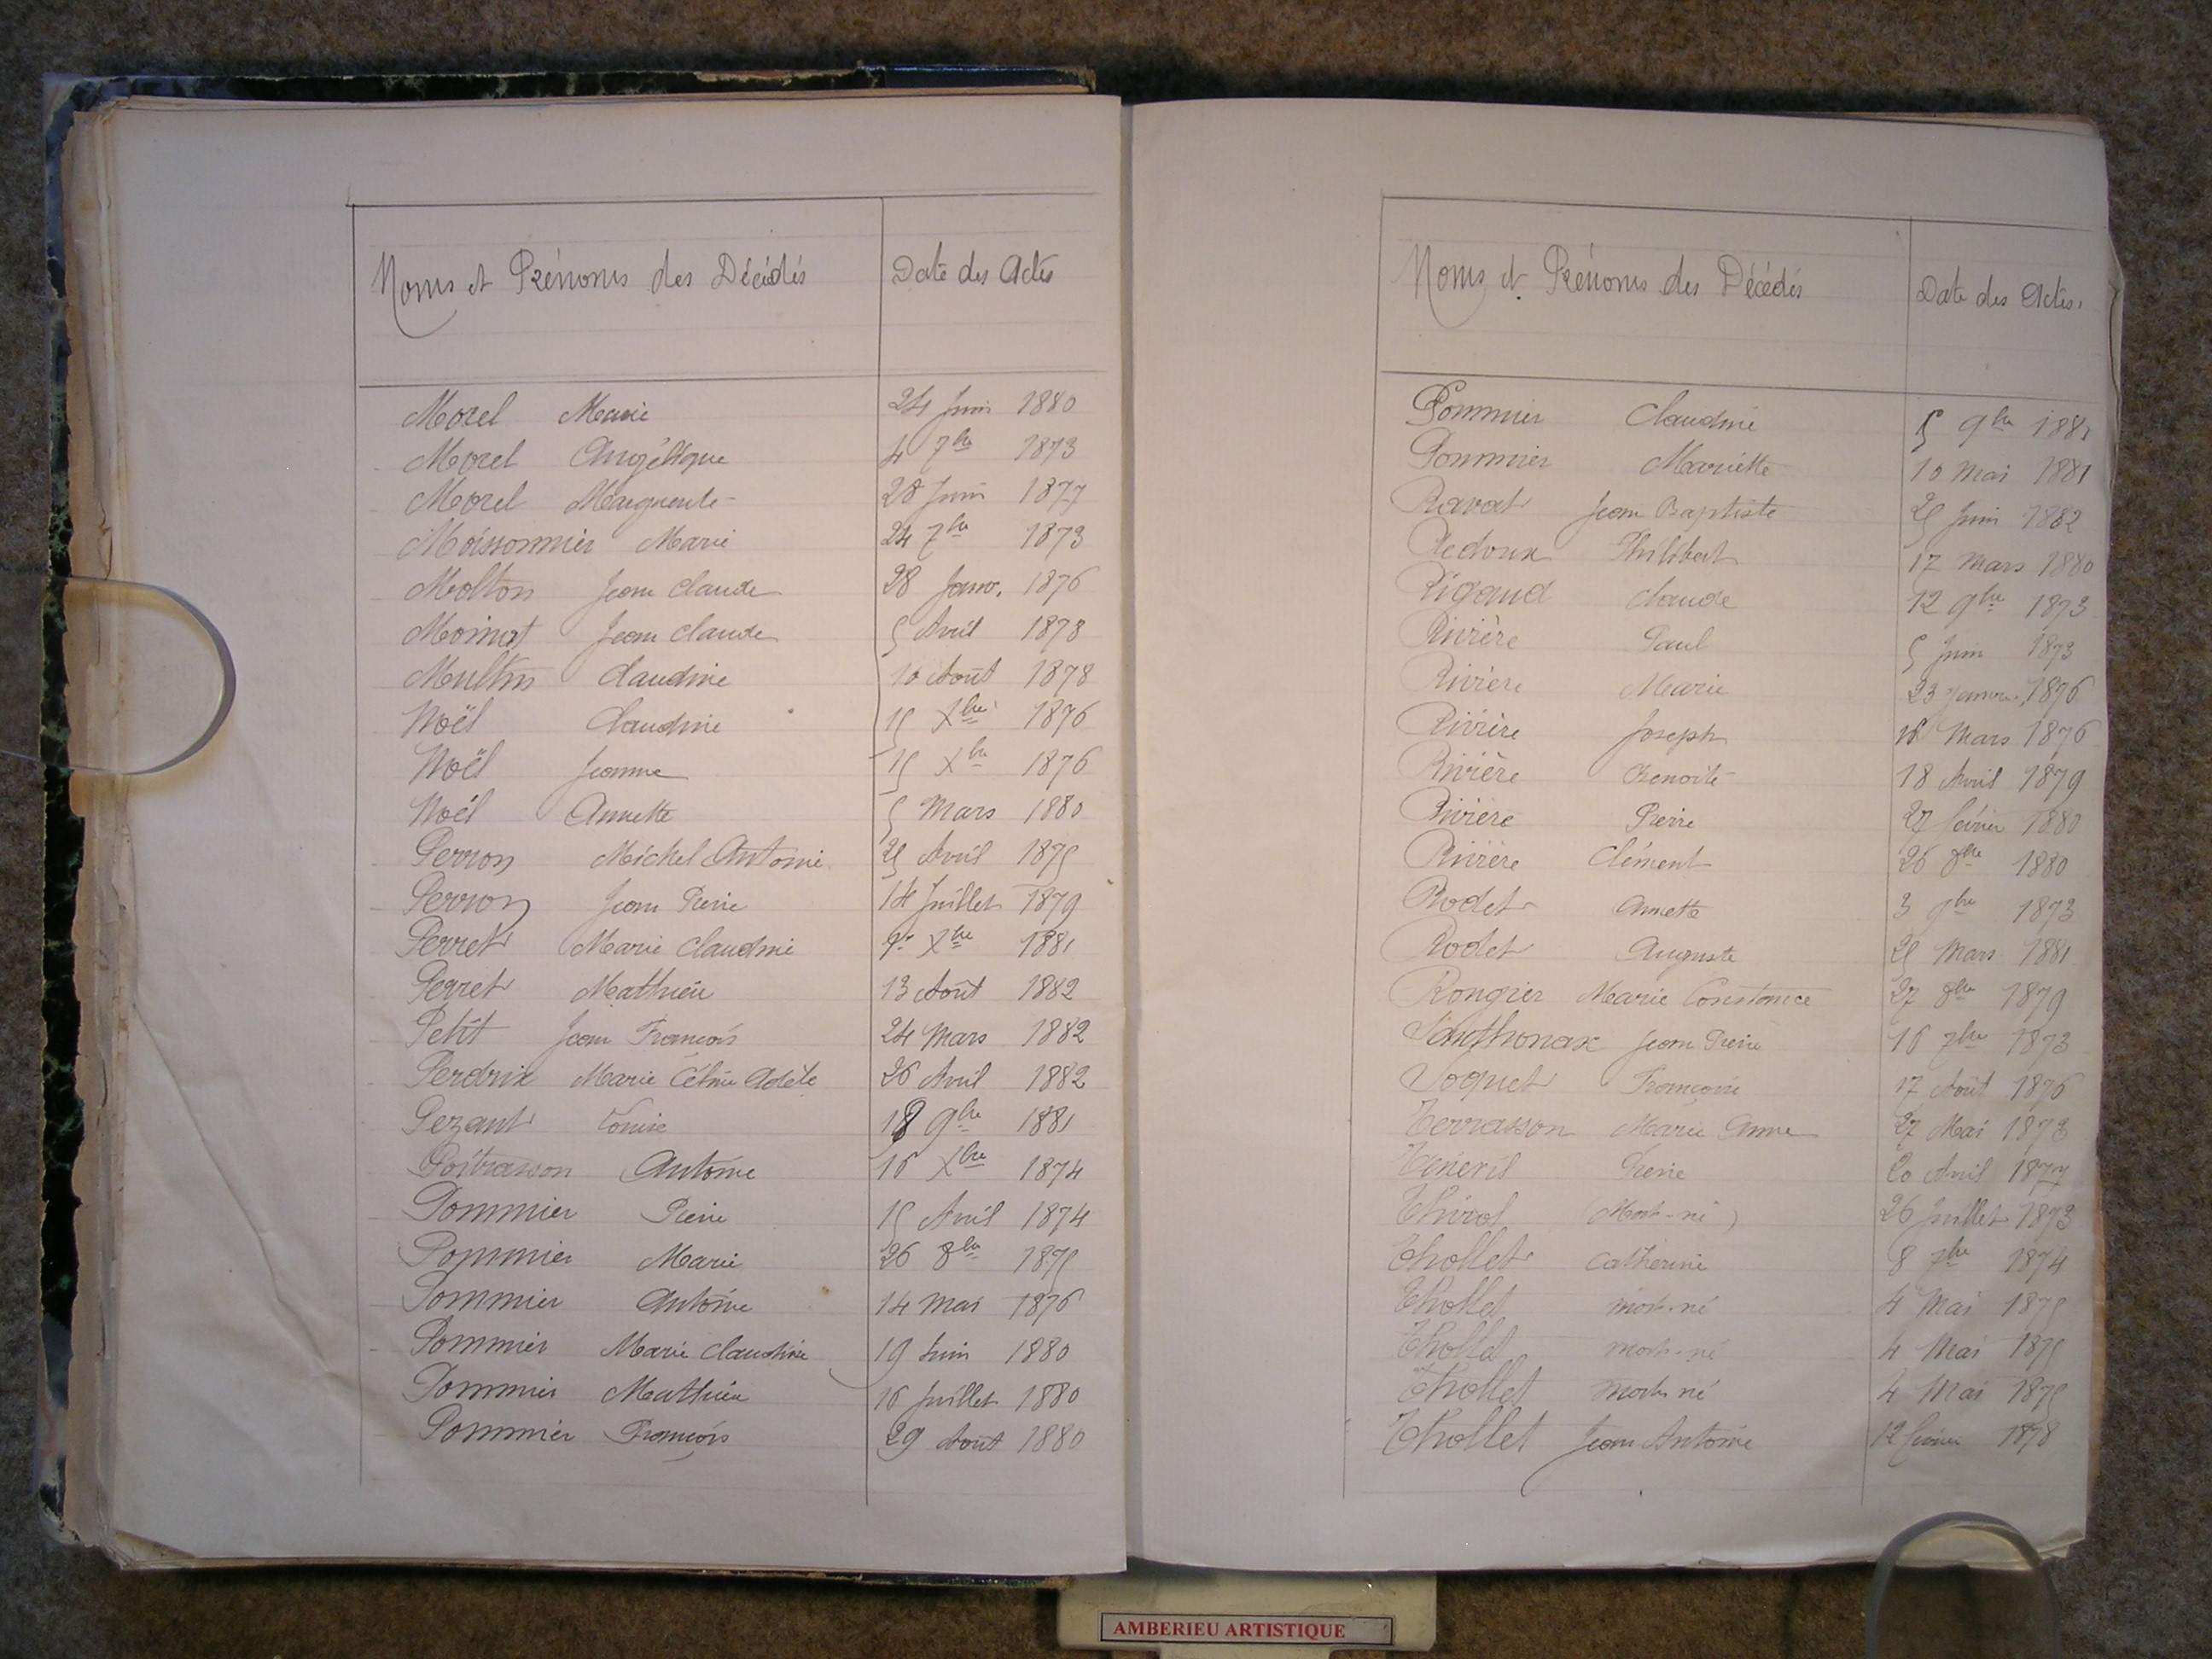 Noms et Prénoms des Décédés Date des Actes
Morel Marie 24 Juin 1880
Morel Angélique 4 7bre 1873
Morel Marguerite 28 Juin 1877
Moissonnier Marie 24 7bre 1873
Molton Jean Claude 28 Janv. 1876
Moinat Jean Claude 5 Avril 1878
Multin Claudine 10 Août 1878
Noël Claudine 15 Xbre 1876
Noël Jeanne 15 Xbre 1876
Noël Annette 5 Mars 1880
Perron Michel Antoine 25 Avril 1875
Perron Jean Pierre 14 Juillet 1879
Perret Marie Claudine Xbre 1881
Perret Mathieu 13 Août 1882
Petit Jean François 24 Mars 1882
Perdrix Marie Adèle 26 Avril 1882
Pezant Louise 18 9bre 1881
Poitrasson Antoine 16 Xbre 1874
Pommier Pierre 15 Avril 1874
Pommier Marie 26 8bre 1875
Pommier Antoine 14 Mai 1876
Pommier Marie Claudine 19 Juin 1880
Pommier Mathieu 16 Juillet 1880
Pommier François 29 Août 1880
Noms et Prénoms des Décédés Date des Actes.
Pommier Claudine 5 9bre 1881
Pommier Mariette 10 Mai 1881
Ravat Jean Baptiste 25 Juin 1882
Redoux Philibert 17 Mars 1880
Rigaud Claude 12 9bre 1873
Rivière Paul 5 Juin 1873
Rivière Marie 23 1876
Rivière Joseph 18 Mars 1876
Rivière Benoîte 18 Avril 1879
Rivière Pierre 27 février 1880
Rivière Clément 26 8bre 1880
Rodet Annette 3 9bre 1873
Rodet Auguste 25 Mars 1881
Rongier Marie Constance 27 8bre 1879
Santhonax Jean Pierre 16 7bre 1873
Soquet Françoise 17 Août 1876
Terrasson Marie Anne 27 Mai 1873
Pierre 20 Avril 1877
Thirot (Mort-né) 26 Juillet 1873
Thollet Catherine 8 7bre 1874
Thollet mort-né 4 Mai 1875
Thollet mort-né 4 Mai 1875
Thollet mort né 4 Mai 1875
Thollet Jean Antoine 12 février 1878
AMBERIEU ARTISTIQUE